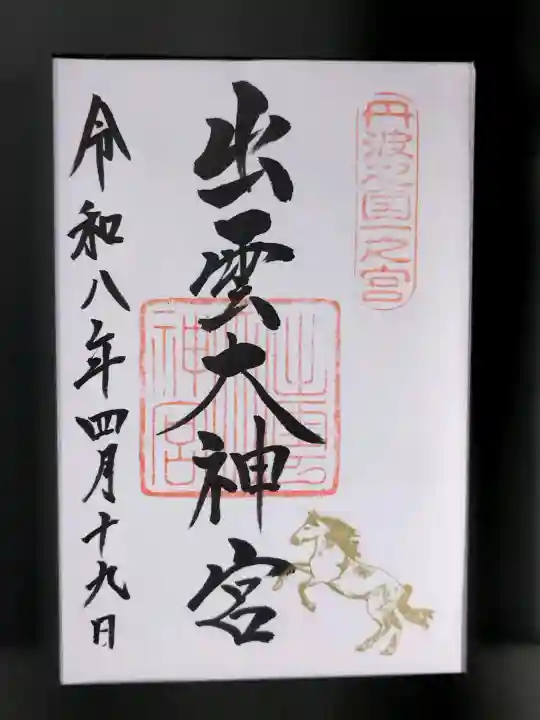 丹波之國一之宮
出雲大神宮
出雲大神宮
令和八年四月十九日